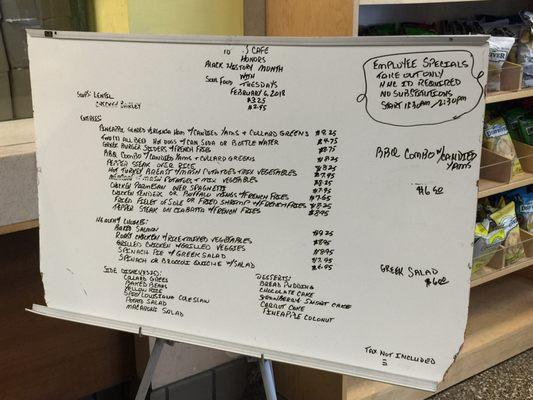 CAFE
HONORS
BLACK HISTORY MONTH
WITH
SOUL FOOD - TUESDAYS
FEBRUARY 6, 2018
SOUPS LENTEL $3.25
CHICKEN BARLEY $2.45
ENTREES
PINEAPPLE GLAZED VIRGINIA HAM W/CANDIED YAMS & COLLARD GREENS $8.25
TWO ALL BEEF HOT DOGS W/CAN SODA OR BOTTLE WATER $4.75
SLIDERS W/FRENCH FRIES $8.75
BBQ COMBO W/CANDIED YAMS & COLLARD GREENS $8.25
PEPPER STEAK OVER RICE $8.25
HOT TURKEY BREAST W/MASH POTATOES & MIX VEGETABLES $7.95
W/MASH POTATOES & MIX VEGETABLES $8.25
CHICKEN PARMESAN OVER SPAGHETTI $7.95
CHICKEN TENDERS OR BUFFALO WINGS W/FRENCH FRIES $7.65
FRIED FILLET OF SOLE OR FRIED SHRIMP W/FRENCH FRIES $8.25
PEPPER STEAK ON CIABATTA W/FRENCH FRIES $8.95
HEALTHY CHOICES:
BAKED SALMON $9.25
ROAST CHICKEN W/RICE & MIXED VEGETABLES $8.95
GRILLED CHICKEN W/GRILLED VEGGIES $8.95
SPINACH PIE W/GREEK SALAD $7.95
SPINACH OR BROCCOLI QUICHE W/SALAD $6.95
SIDE DISHES
COLLARD GREENS
BAKED BEANS
YELLOW RICE
SPICY LOUISIANA COLESLAW
POTATO SALAD
MACARONI SALAD
DESSERTS:
BREAD PUDDING
CHOCOLATE CAKE
STRAWBERRY SHORT CAKE
CARROT CAKE
PINEAPPLE COCONUT
EMPLOYEE SPECIALS
TAKE OUT ONLY
ID REQUIRED
NO SUBSTITUTIONS
START 1:30PM / 2:30PM
BBQ COMBO W/CANDIED
YAMS
$6.00
GREEK SALAD
$6.00
TAX NOT INCLUDED